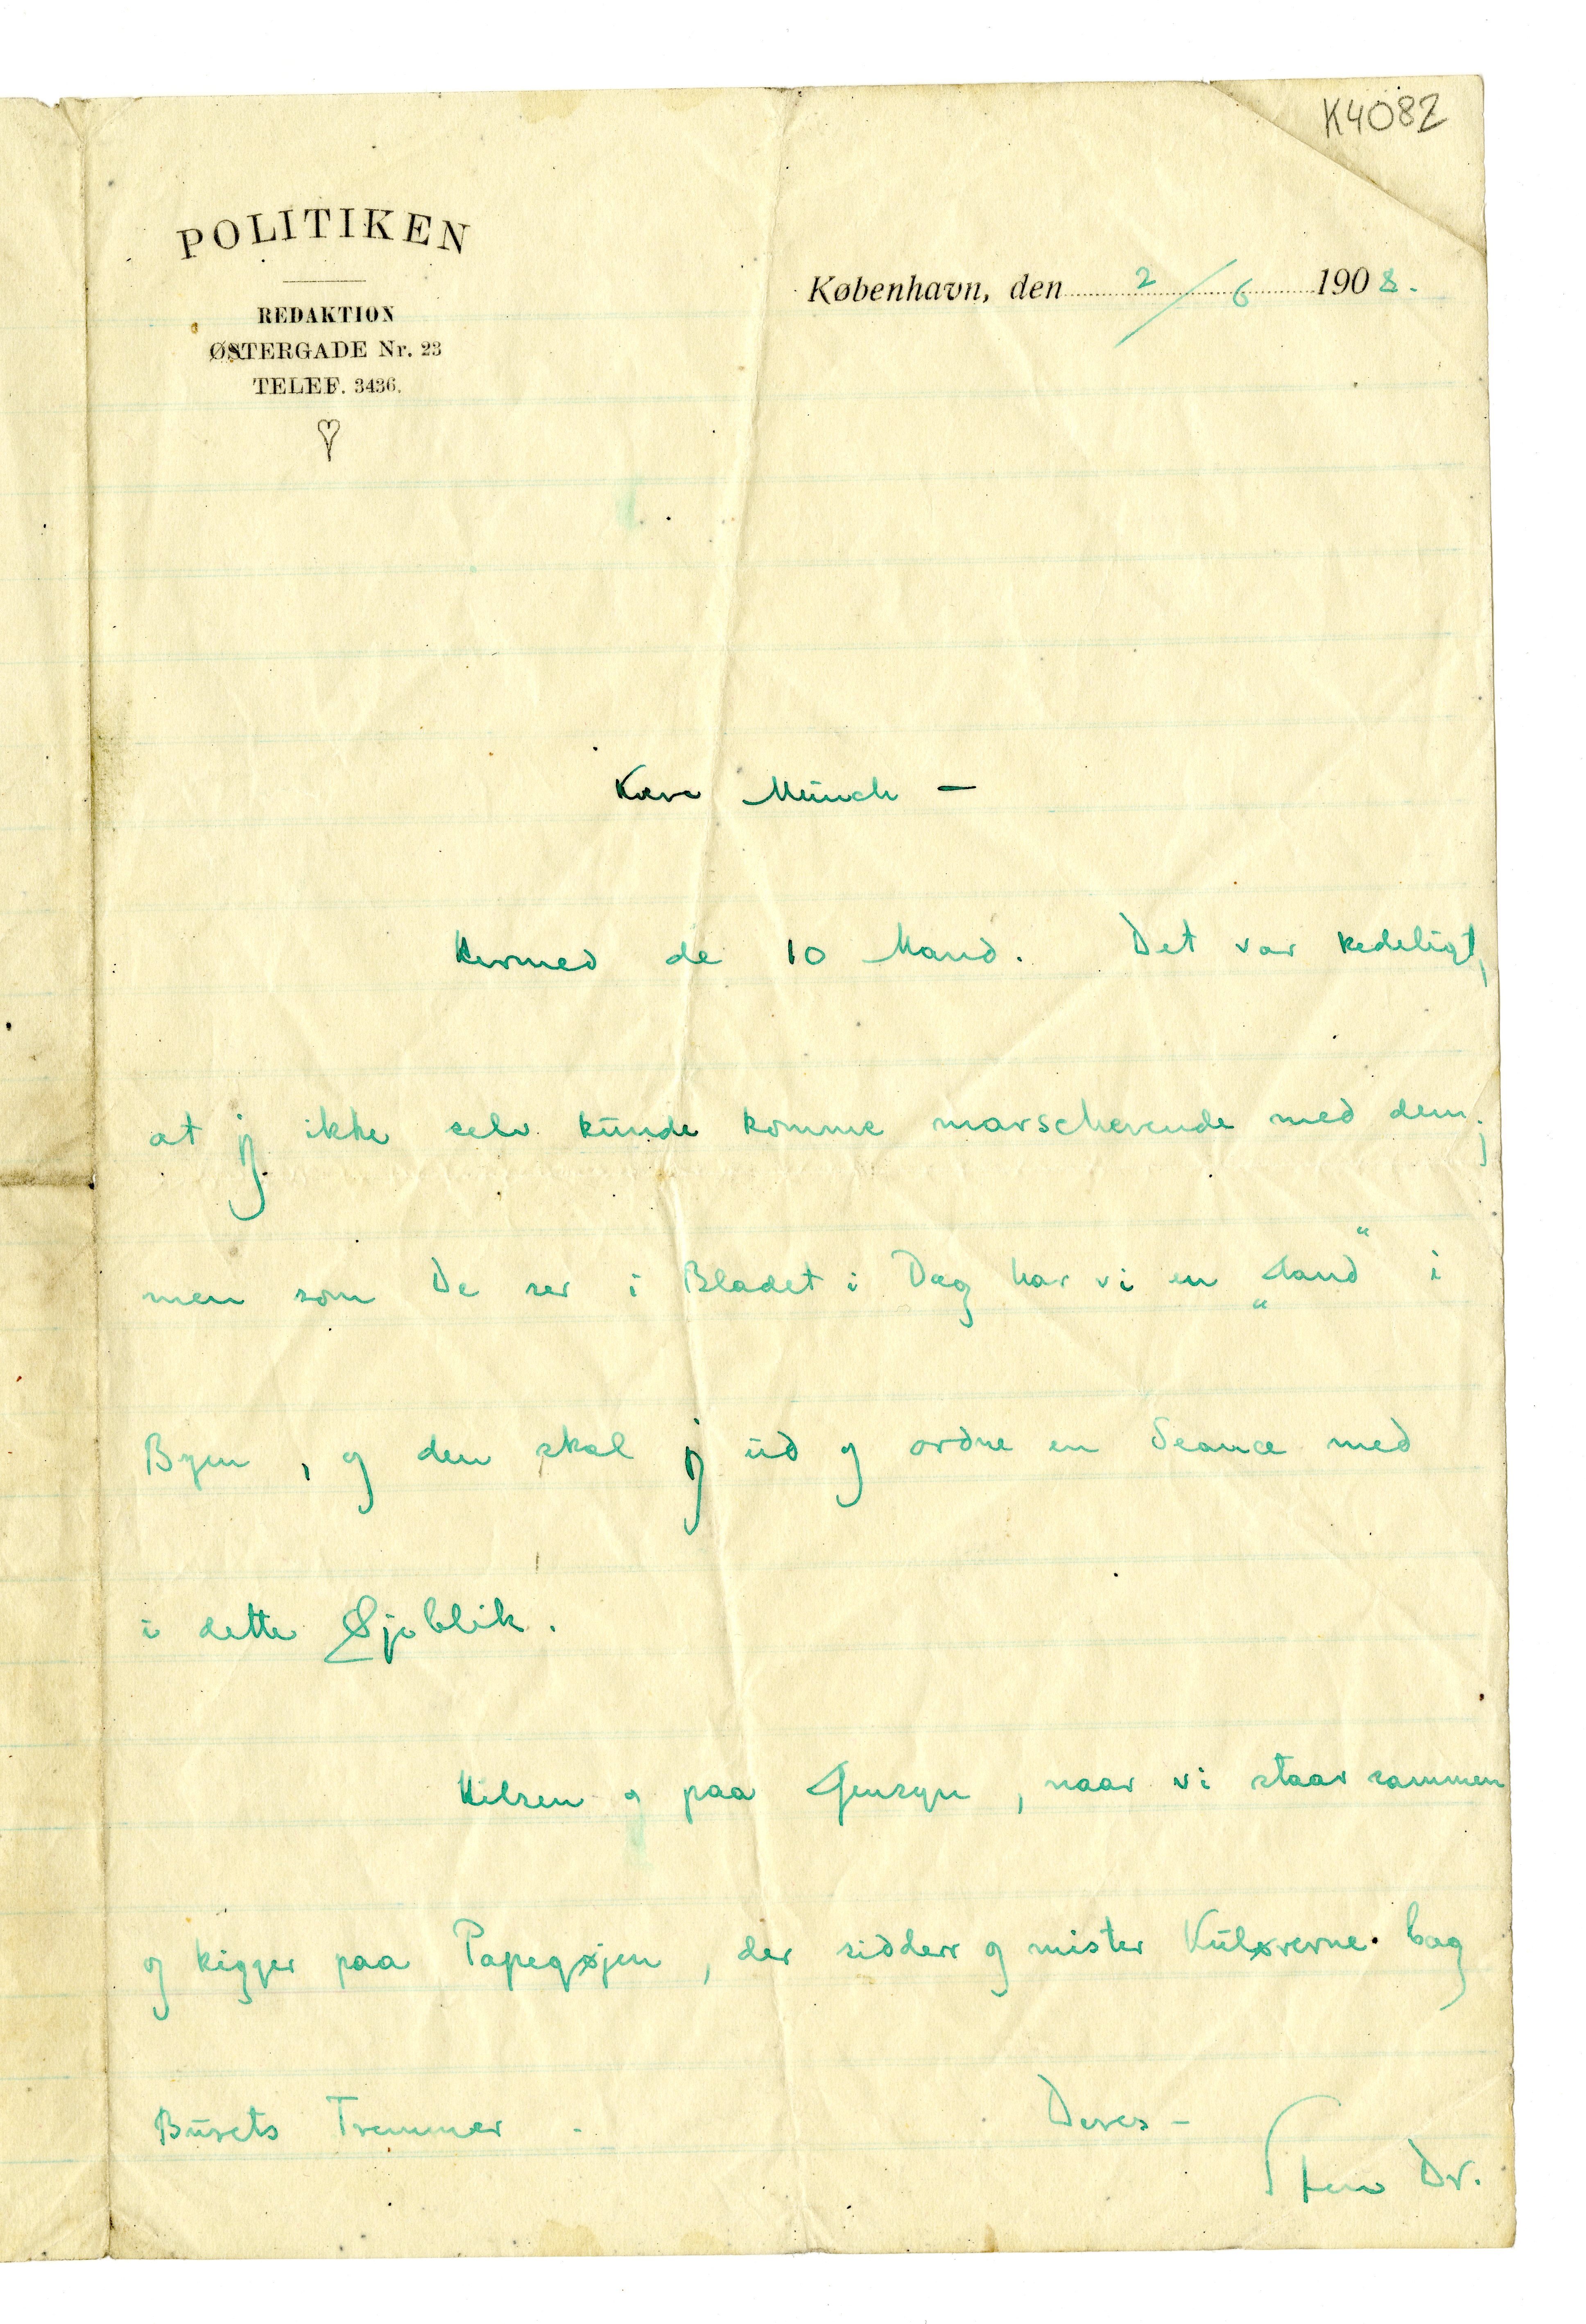 K4082
POLITIKEN
REDAKTION
ØSTERGADE Nr. 23
TELEF. 3436.
København, den 2/6 1908.
Kære Munch –
Hermed de 10 Mand. Det var kedeligt,
at jeg ikke selv kunde komme marscherende med dem;
men som De ser i Bladet i Dag har vi en „Aand“ i
Byen, og den skal jeg ud og ordne en Seance med
i dette Øjeblik.
Hilsen og paa Gensyn, naar vi staar sammen
og kigger paa Papegøjen, der sidder og mister Kulørerne bag
Burets Tremmer.
Deres –
Sten Dr.